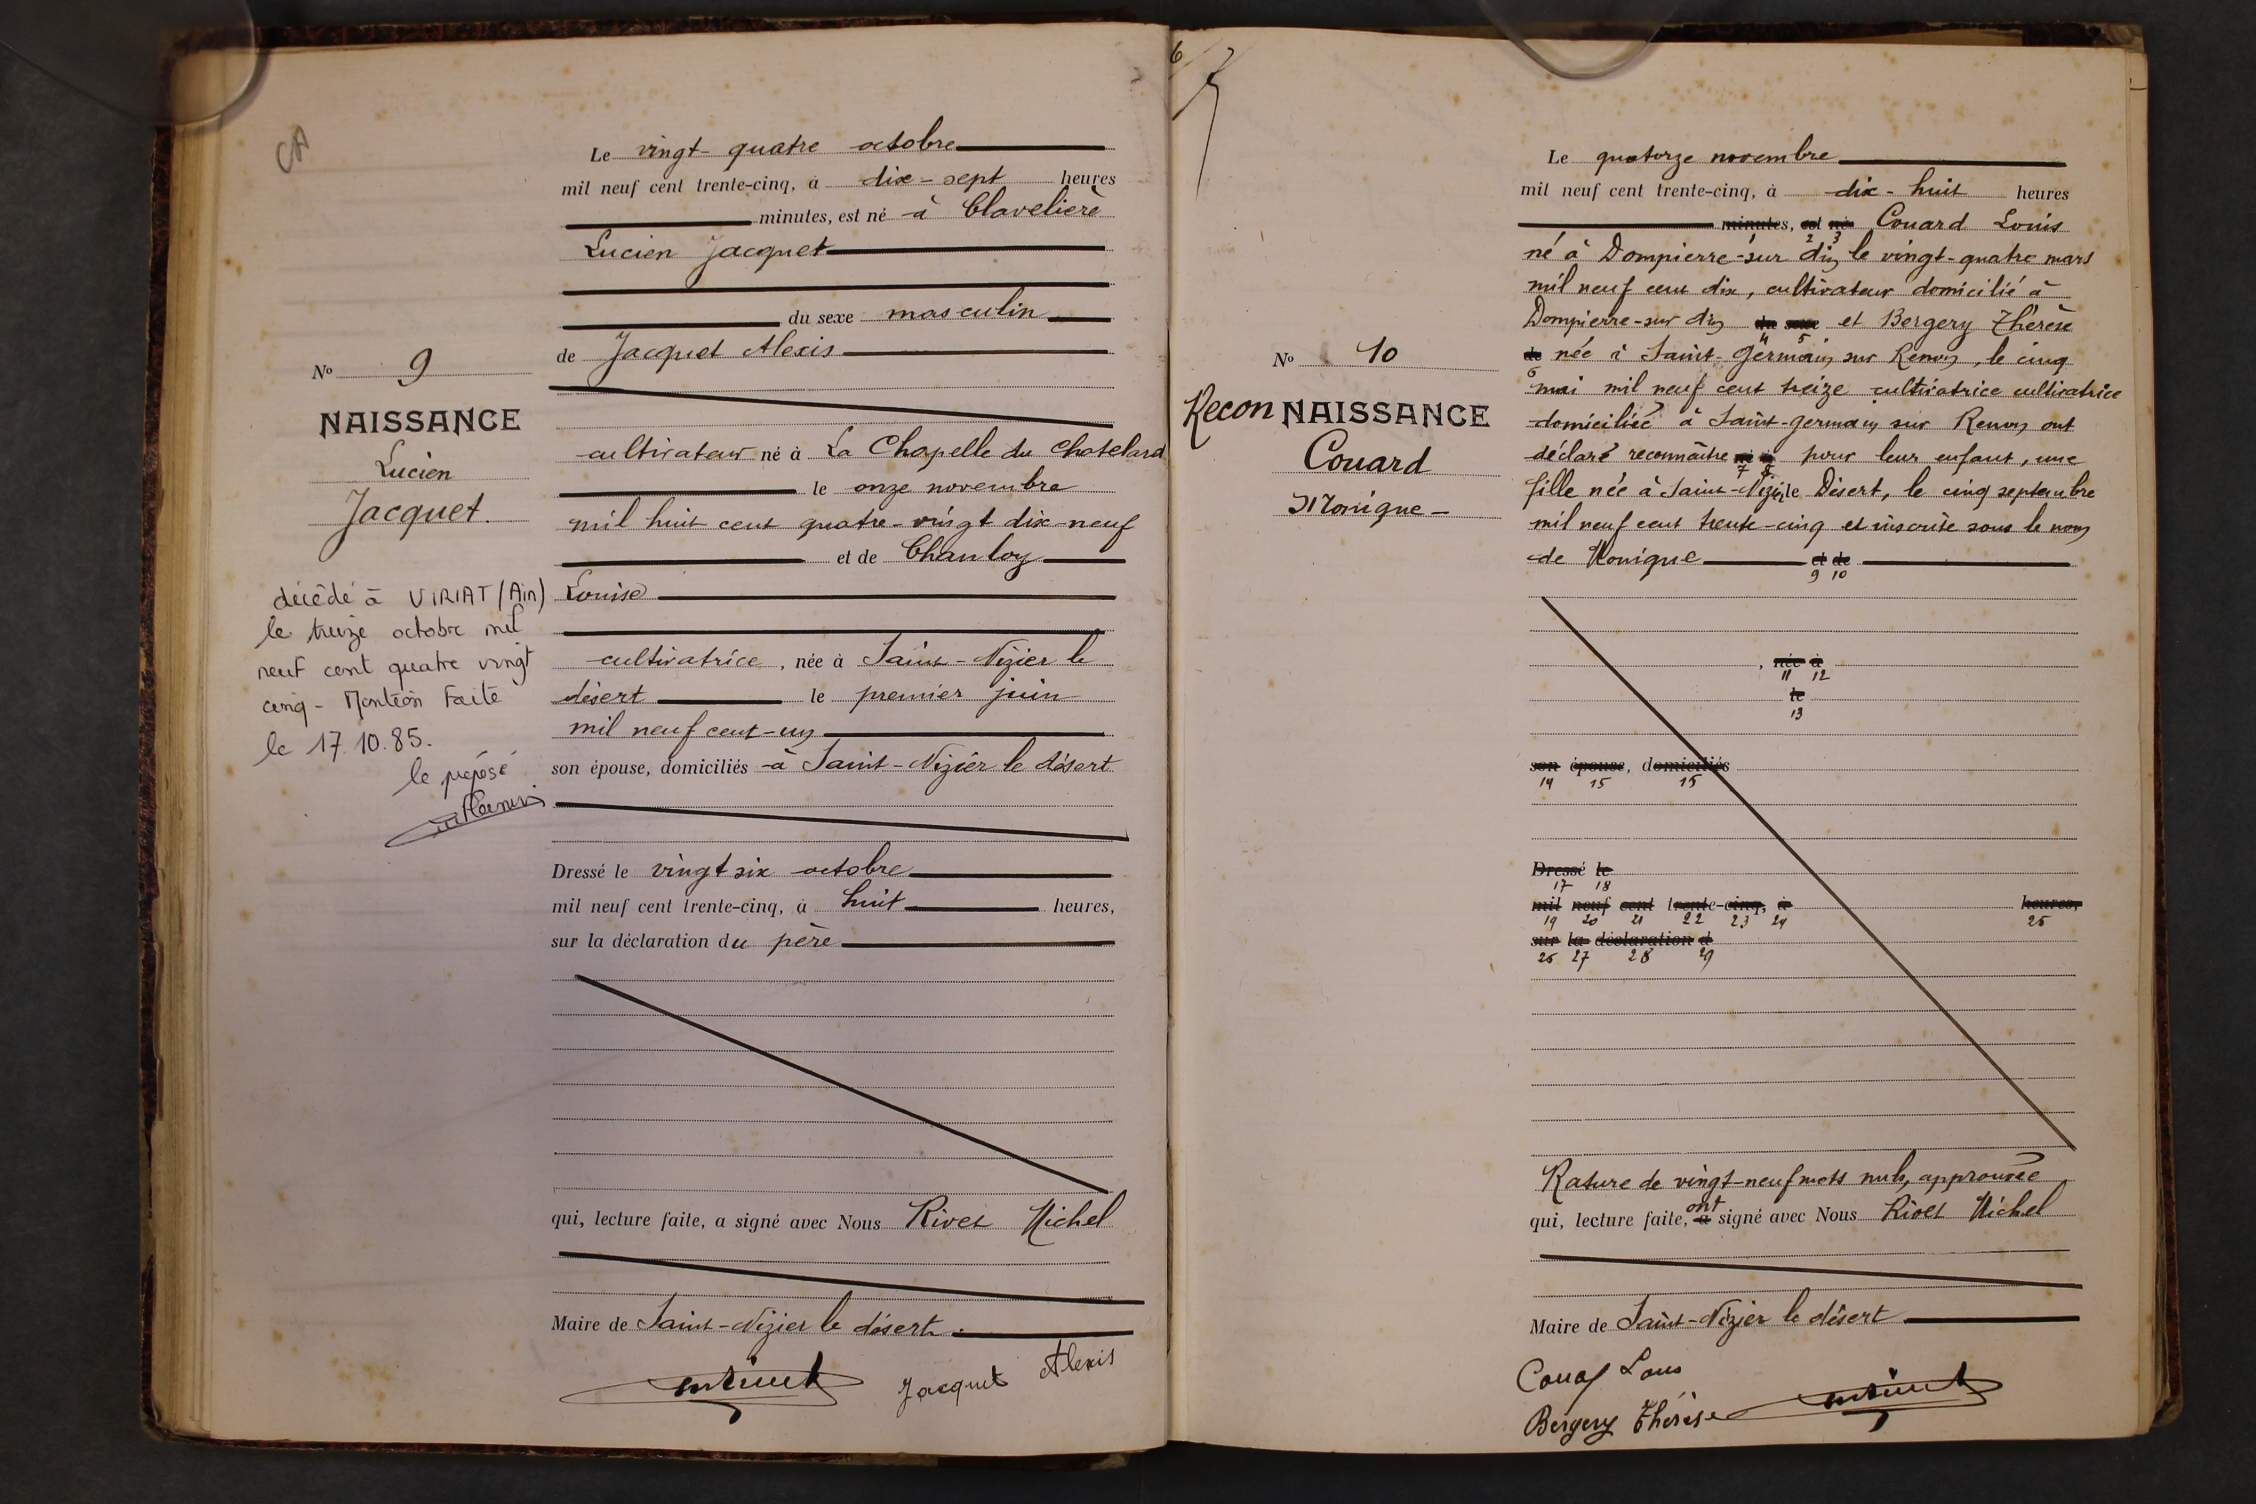 CA
Le vingt-quatre octobre
mil neuf cent trente-cinq, à dix-sept heures
minutes, est né à Clavelière
Lucien Jacquet
du sexe masculin
de Jacquet Alexis
N° 9
NAISSANCE
Lucien
Jacquet.
cultivateur né à La Chapelle du Chatelard
le onze novembre
mil huit cent quatre-vingt dix-neuf
et de Chanloy
Louise
cultivatrice, née à Saint-Nizier le
désert le premier juin
mil neuf cent-un
son épouse, domiciliés à Saint-Nizier le désert
décédé à VIRIAT (Ain)
le treize octobre mil
neuf cent quatre vingt
cinq - Mention faite
le 17.10.85.
le préposé
Dressé le vingt six octobre
mil neuf cent trente-cinq, à huit heures,
sur la déclaration du père
qui, lecture faite, a signé avec Nous Rivet Michel
Maire de Saint-Nizier le désert.
Jacquet Alexis
6
Le quatorze novembre
mil neuf cent trente-cinq, à dix-huit heures
minutes, est né Couard Louis
1 2 3
né à Dompierre-sur din le vingt-quatre mars
mil neuf cent dix, cultivateur domicilié à
Dompierre-sur din du sexe et Bergery Thérèse
4 5
de née à Saint-Germain sur Renon, le cinq
6
mai mil neuf cent treize cultivatrice cultivatrice
domiciliée à Saint-Germain sur Renon ont
déclaré reconnaître né à pour leur enfant, une
7 8
fille née à Saint-Nizier le Désert, le cinq septembre
mil neuf cent trente-cinq et inscrite sous le nom
de Monique et de
9 10
N° 10
Recon NAISSANCE
Couard
Monique -
, née à
11 12
le
13
son épouse, domiciliés
14 15 15
Dressé le
17 18
mil neuf cent trente-cinq, à heures,
19 20 21 22 23 24 25
sur la déclaration d
26 27 28 29
Rature de vingt-neuf mots nuls, approuvée
ont
qui, lecture faite, a signé avec Nous Rivet Michel
Maire de Saint-Nizier le désert
Couar Louis
Bergery Thérèse